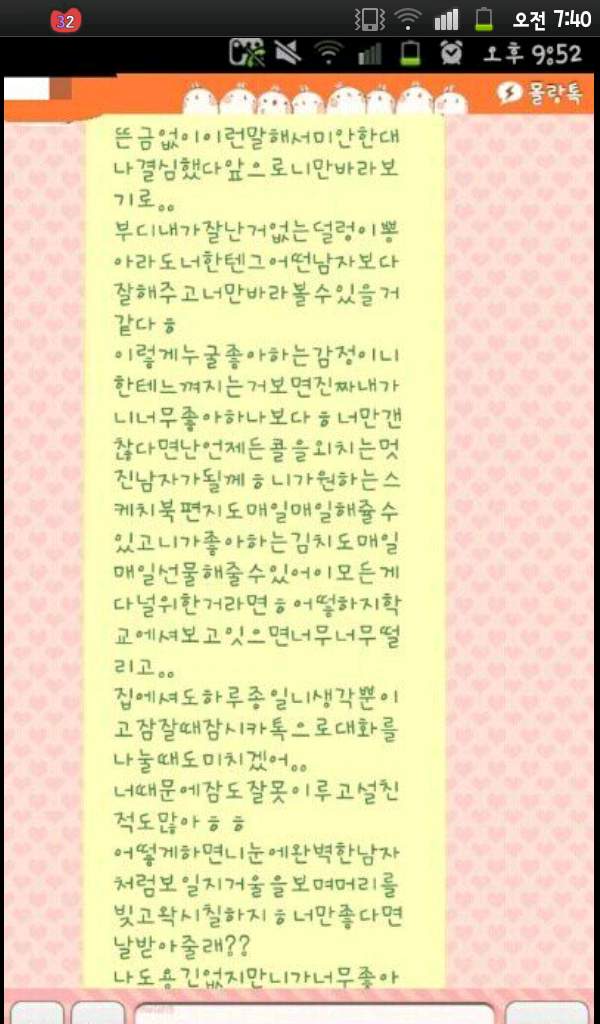 32 오전 7:40
오후 9:52
몰랑톡
뜬금없이이런말해서미안한대
나결심했다앞으로니만바라보
기로。。
부디내가잘난거없는덜렁이뿡
아라도너한텐그어떤남자보다
잘해주고너만바라볼수있을거
같다ㅎ
이렇게누굴좋아하는감정이니
한테느껴지는거보면진짜내가
니너무좋아하나보다ㅎ너만갠
찮다면난언제든콜을외치는멋
진남자가될께ㅎ니가원하는스
케치북편지도매일매일해쥴수
있고니가좋아하는김치도매일
매일선물해줄수있어이모든게
다널위한거라면ㅎ어떻하지학
교에셔보고잇으면너무너무떨
리고。。
집에셔도하루종일니생각뿐이
고잠잘때잠시카톡으로대화를
나눌때도미치겠어。。
너때문에잠도잘못이루고설친
적도많아ㅎㅎ
어떻게하면니눈에완벽한남자
처럼보일지거울을보며머리를
빚고왁시칠하지ㅎ너만좋다면
날받아줄래??
나도용긴없지만니가너무좋아